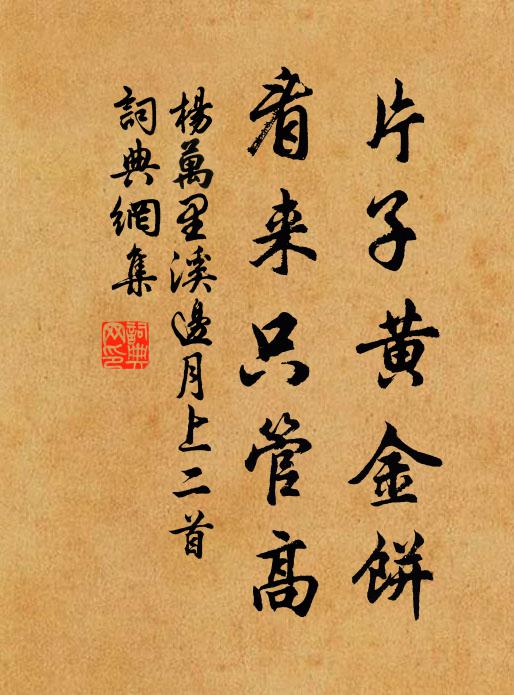 片子黄金餅
看来只管高
楊萬里溪邊月上二首
詞典網集
詞典网印